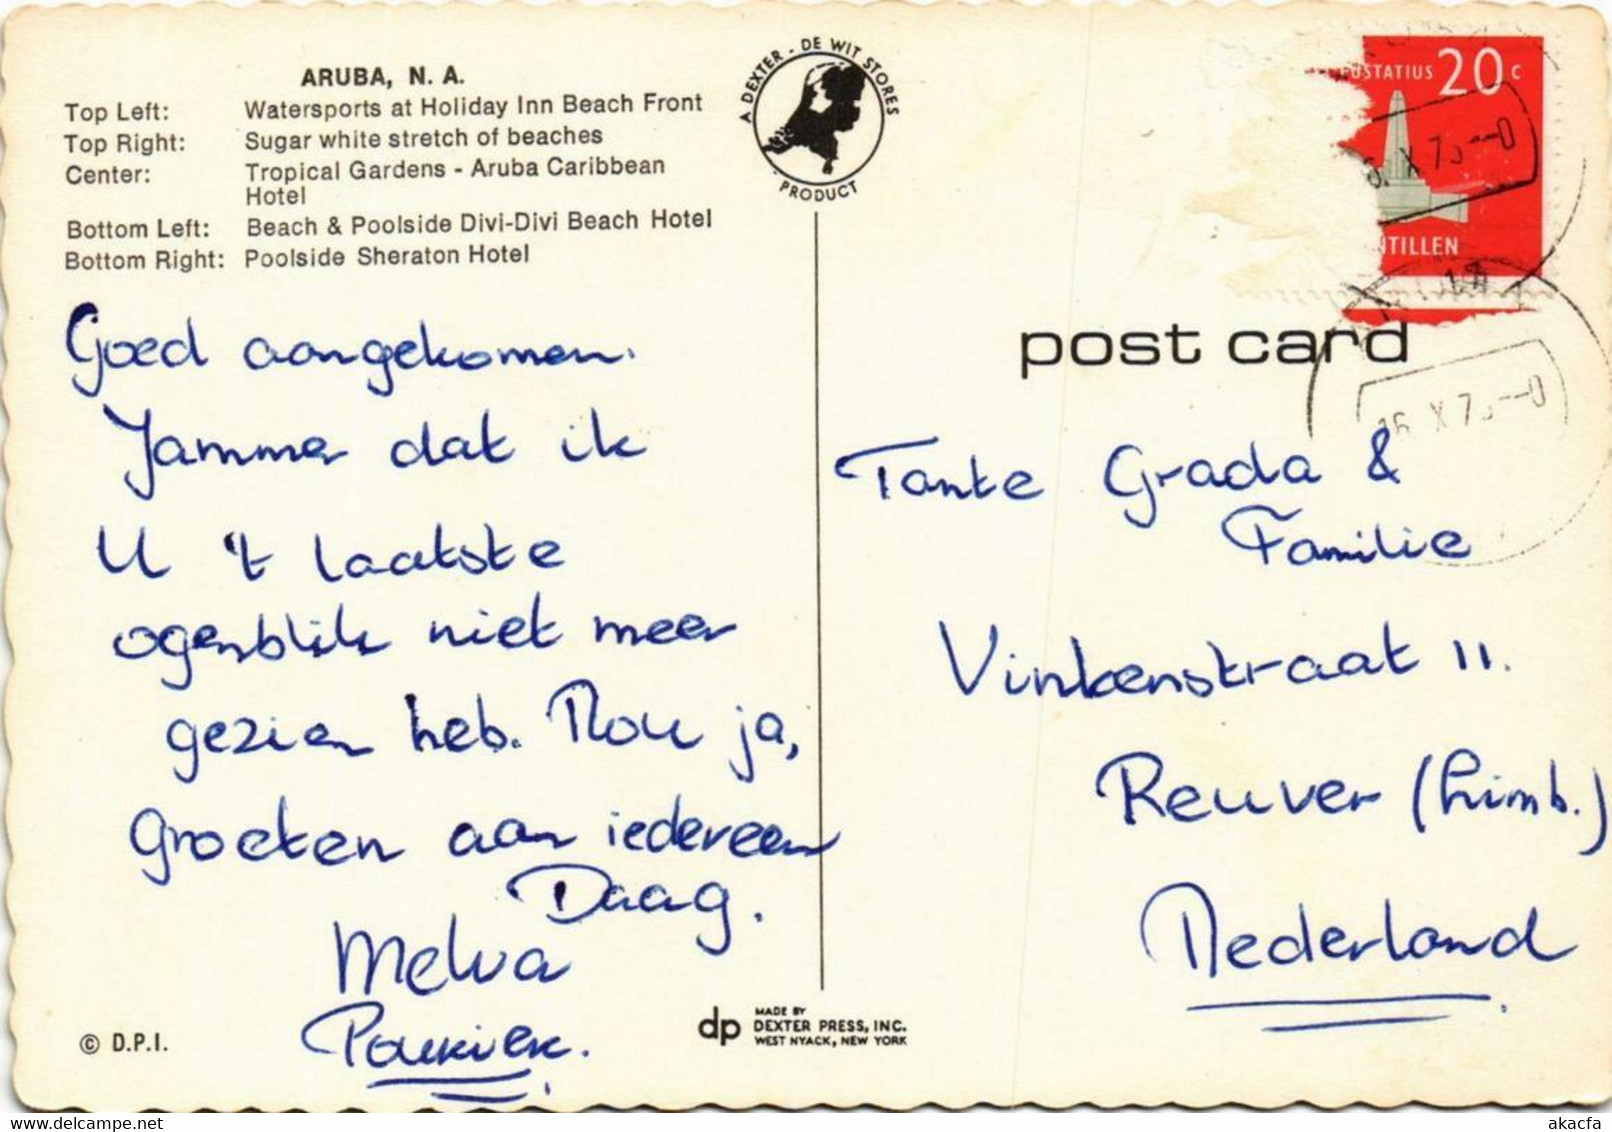 ARUBA, N. A.
Top Left: Watersports at Holiday Inn Beach Front
Top Right: Sugar white stretch of beaches
Center: Tropical Gardens - Aruba Caribbean
Hotel
Bottom Left: Beach & Poolside Divi-Divi Beach Hotel
Bottom Right: Poolside Sheraton Hotel
A DEXTER - DE WIT STORES
PRODUCT
EUSTATIUS 20 c
X 7
NTILLEN
post card
16 X 7
Goed aangekomen.
Jammer dat ik
U 't laatste
ogenblik niet meer
gezien heb. Nou ja,
groeten aan iedereen
Daag.
Melva
Tante Grada &
Familie
Vinkenstraat 11.
Reuver (Limb.)
Nederland
© D.P.I.
dp MADE BY
DEXTER PRESS, INC.
WEST NYACK, NEW YORK
akacfa